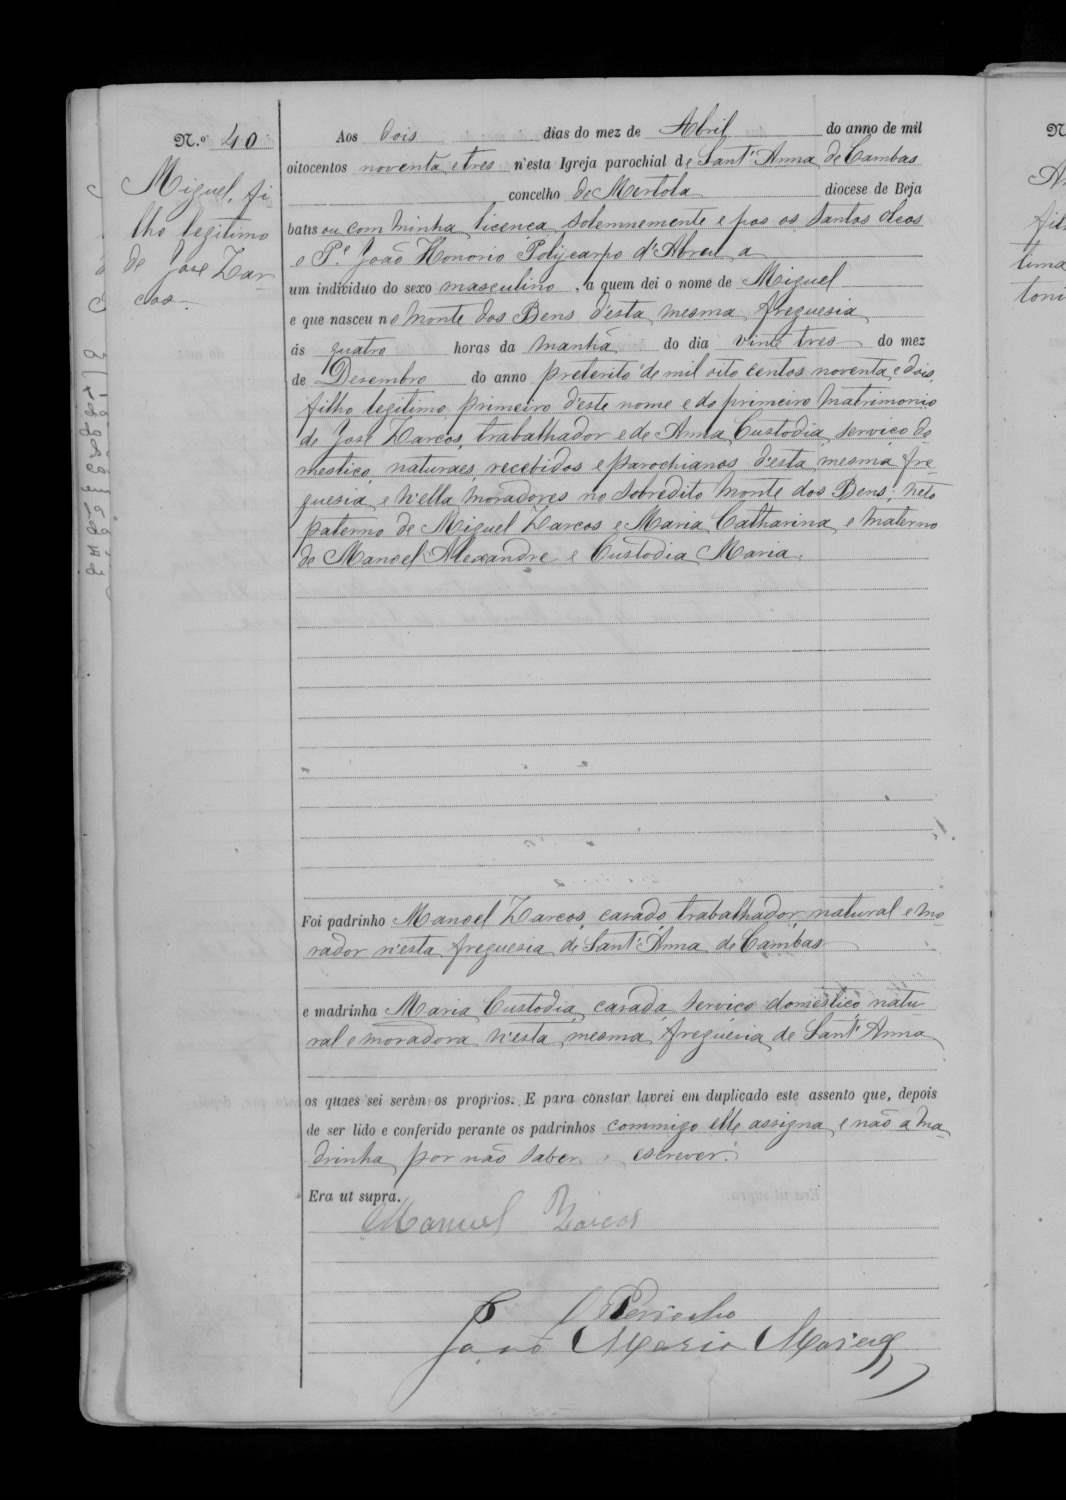 N.º 40
Miguel, fi
lho legitimo
de Jose Zar-
cos.
Aos dois dias do mez de Abril do anno de mil
oitocentos noventa e tres n'esta Igreja parochial de Sant'Anna de Cambas
concelho de Mertola diocese de Beja
batis ou com minha licença solemnemente e pos os santos oleos
o P.e João Honorio Polycarpo d'Abreu a
um individuo do sexo masculino, a quem dei o nome de Miguel
e que nasceu no Monte dos Bens d'esta mesma freguesia
ás quatro horas da manhã do dia vinte tres do mez
de Desembro do anno preterito de mil oito centos noventa e dois,
filho legitimo, primeiro d'este nome e do primeiro matrimonio
de José Zarcos, trabalhador e de Anna Custodia, serviço do
mestico, naturaes, recebidos e parochianos d'esta mesma fre-
guesia, e n'ella moradores no sobredito Monte dos Bens; neto
paterno de Miguel Zarcos e Maria Catharina, e materno
de Manoel Alexandre e Custodia Maria.
Foi padrinho Manoel Zarcos, casado, trabalhador, natural e mo-
rador n'esta freguesia de Sant'Anna de Cambas
e madrinha Maria Custodia, casada, serviço domestico, natu-
ral e moradora n'esta mesma freguesia de Sant'Anna
os quaes sei serem os proprios. E para constar lavrei em duplicado este assento que, depois
de ser lido e conferido perante os padrinhos commigo elle assigna, e não a ma-
drinha por não saber escrever.
Era ut supra.
Manuel Zarcos
O Parocho
João Maria
N